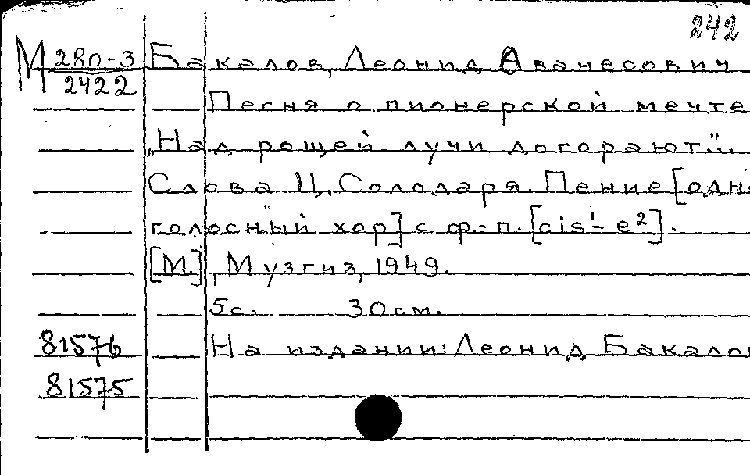 242
М 280-3 Бакалов, Леонид Аванесович
2422
Песня о пионерской мечте
„Над рощей лучи догорают..."
Слова Ц. Солодаря. Пение [одно
голосный хор] с ф.-п. [cis¹- e²].
[М.], Музгиз, 1949.
5с. 30см.
81576 На издании: Леонид Бакалов
81575